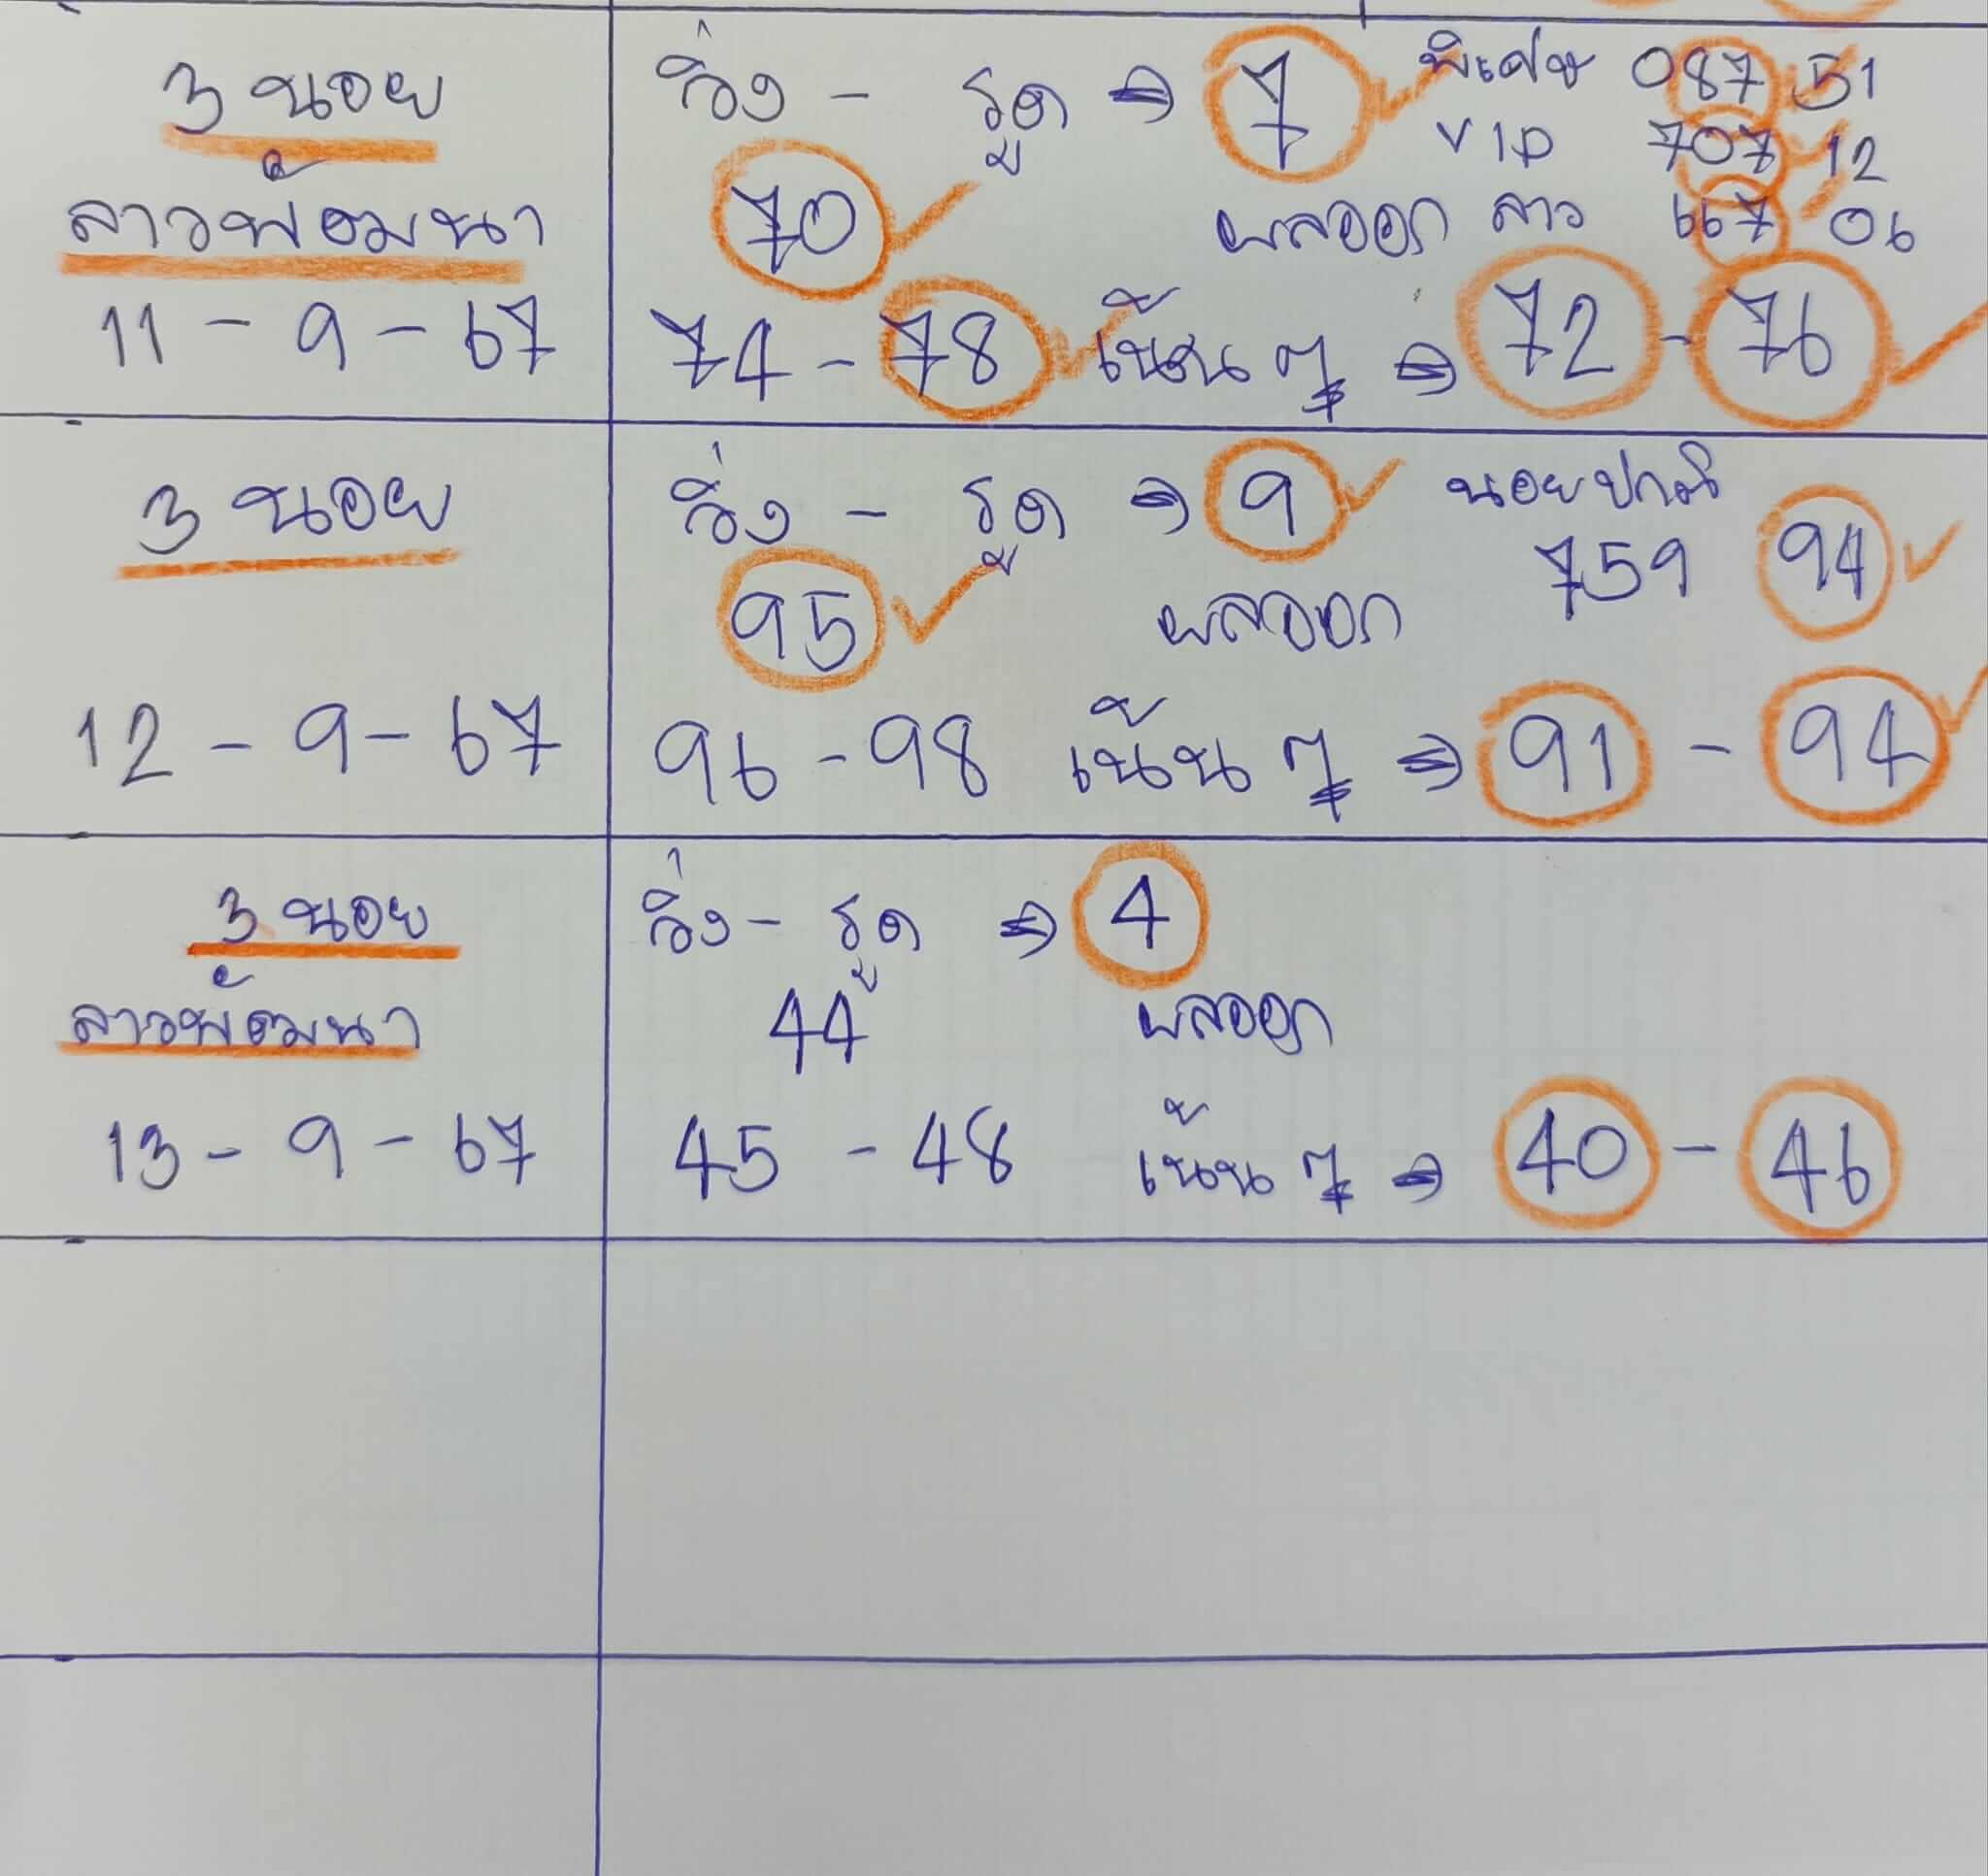 3 นอย
ลาวพัฒนา
11 - 9 - 67
วิ่ง - รูด ⇒ 7
70
74 - 78 เน้น ๆ ⇒ 72 - 76
พิเศษ 087 51
VIP 707 12
ผลออก ลาว 667 06
3 นอย
12 - 9 - 67
วิ่ง - รูด ⇒ 9 นอยปกติ
95 ผลออก 759 94
96 - 98 เน้น ๆ ⇒ 91 - 94
3 นอย
ลาวพัฒนา
13 - 9 - 67
วิ่ง - รูด ⇒ 4
44 ผลออก
45 - 48 เน้น ๆ ⇒ 40 - 46